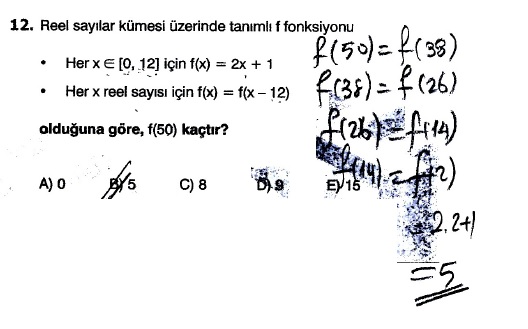 12. Reel sayılar kümesi üzerinde tanımlı f fonksiyonu
• Her x ∈ [0, 12] için f(x) = 2x + 1
• Her x reel sayısı için f(x) = f(x – 12)
olduğuna göre, f(50) kaçtır?
A) 0 B) 5 C) 8 D) 9 E) 15
f(50) = f(38)
f(38) = f(26)
f(26) = f(14)
f(14) = f(2)
= 2.2+1
= 5